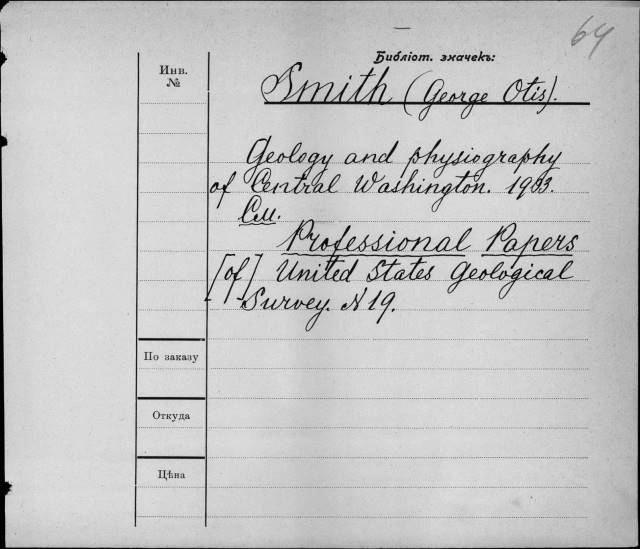 64
Библіот. значекъ:
Инв.
№
Smith (George Otis).
Geology and physiography
of Central Washington. 1903.
См.
Professional Papers
[of] United States Geological
Survey. N 19.
По заказу
Откуда
Цѣна